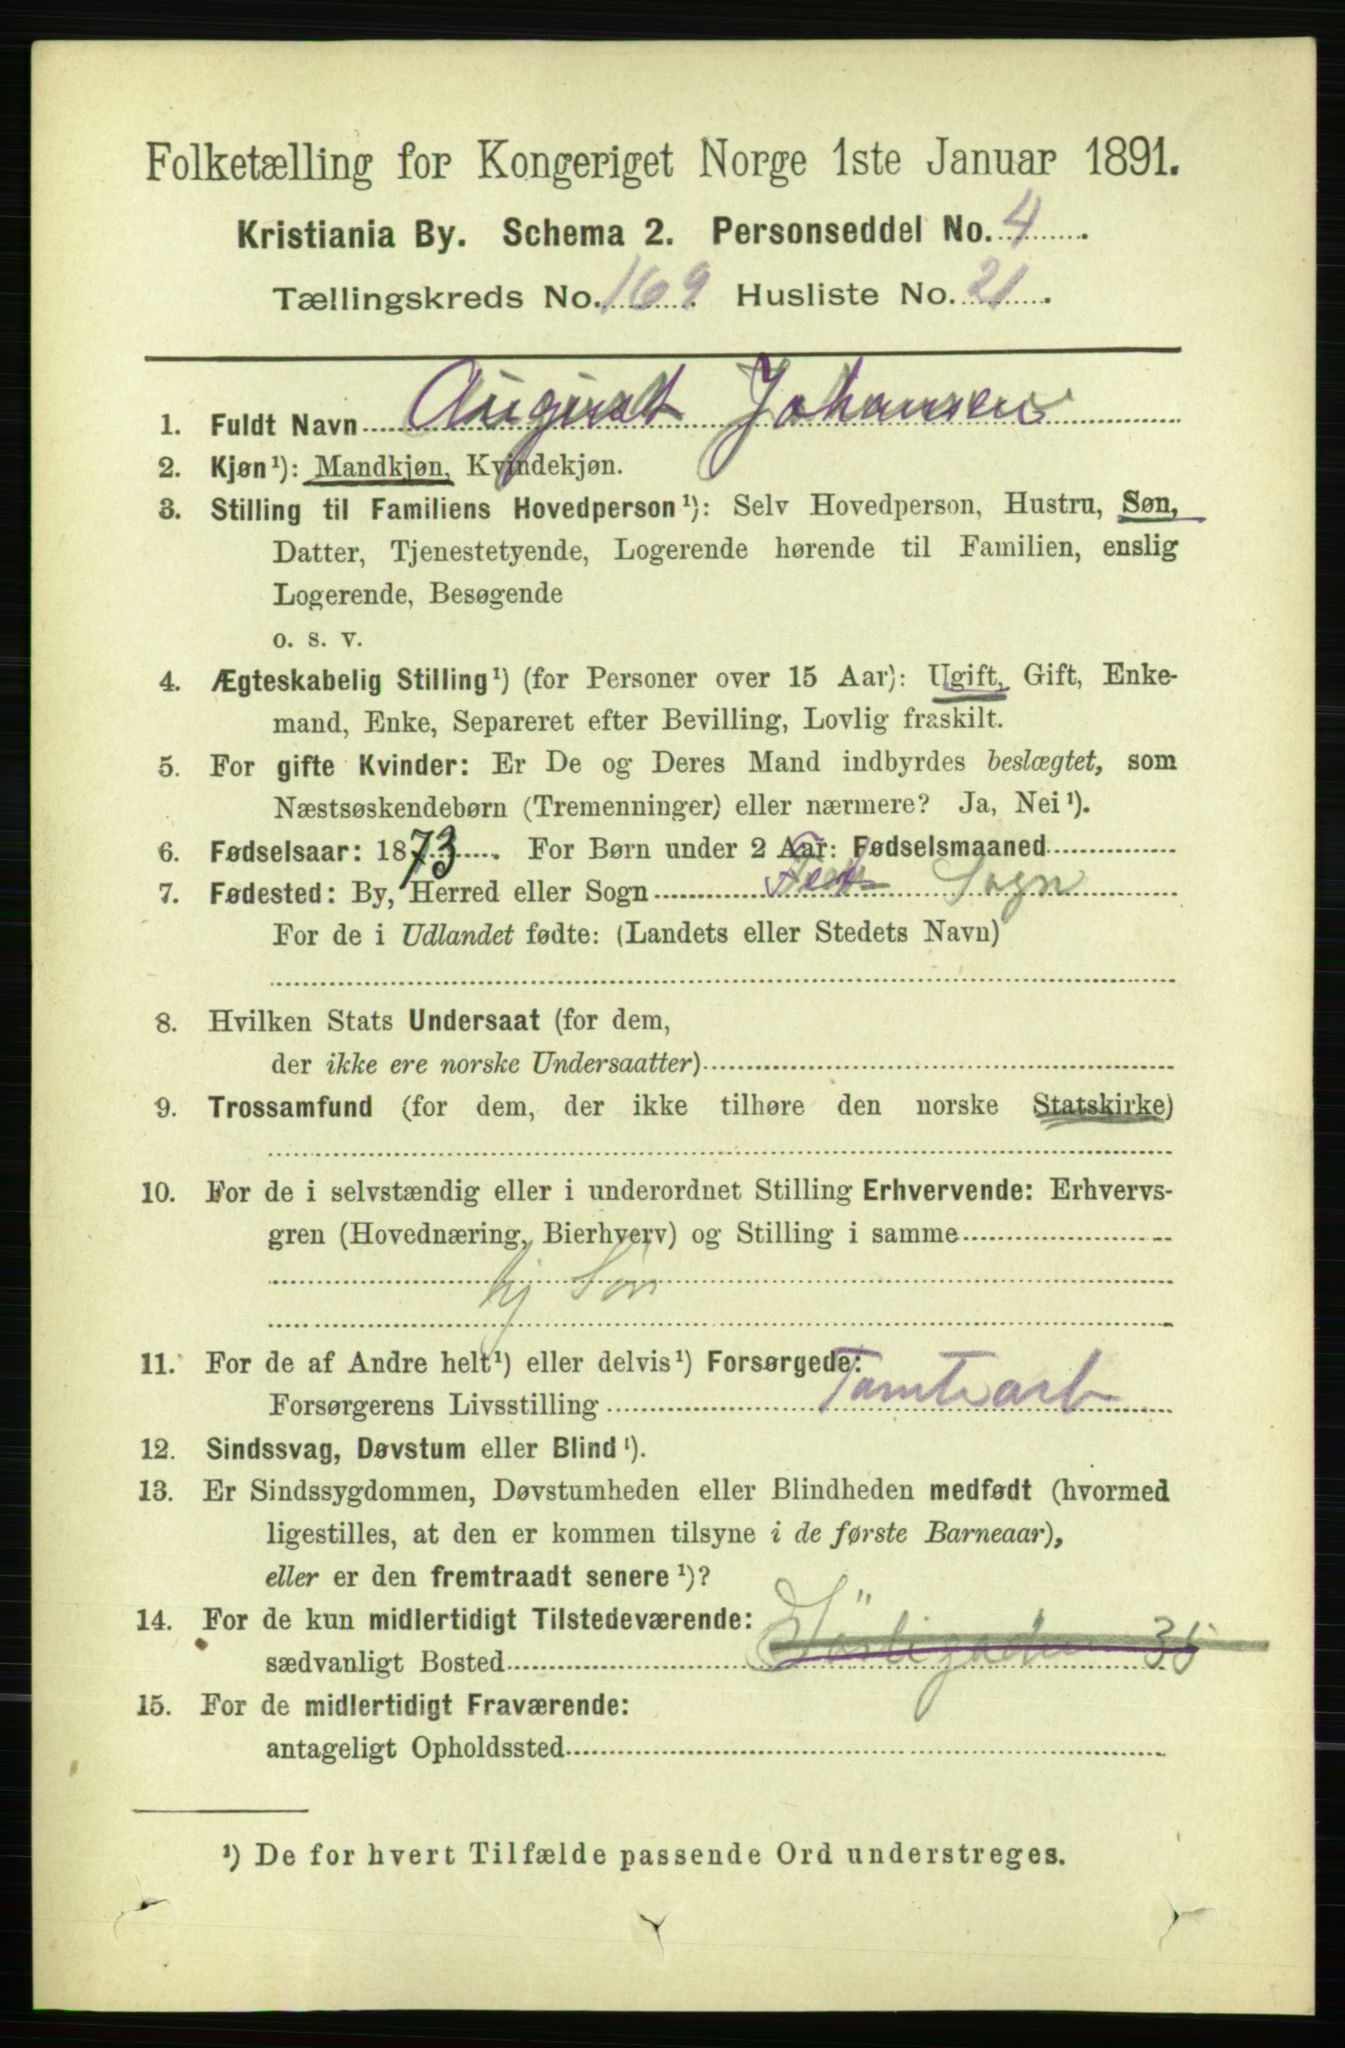 Folketælling for Kongeriget Norge 1ste Januar 1891.
Kristiania By. Schema 2. Personseddel No. 4.
Tællingskreds No. 169. Husliste No. 21.
1. Fuldt Navn August Johansen
2. Kjøn¹): Mandkjøn, Kvindekjøn.
3. Stilling til Familiens Hovedperson¹): Selv Hovedperson, Hustru, Søn,
Datter, Tjenestetyende, Logerende hørende til Familien, enslig
Logerende, Besøgende
o. s. v.
4. Ægteskabelig Stilling¹) (for Personer over 15 Aar): Ugift, Gift, Enke-
mand, Enke, Separeret efter Bevilling, Lovlig fraskilt.
5. For gifte Kvinder: Er De og Deres Mand indbyrdes beslægtet, som
Næstsøskendebørn (Tremenninger) eller nærmere? Ja, Nei¹).
6. Fødselsaar: 1873. For Børn under 2 Aar: Fødselsmaaned
7. Fødested: By, Herred eller Sogn Fet Sogn
For de i Udlandet fødte: (Landets eller Stedets Navn)
8. Hvilken Stats Undersaat (for dem,
der ikke ere norske Undersaatter)
9. Trossamfund (for dem, der ikke tilhøre den norske Statskirke)
10. For de i selvstændig eller i underordnet Stilling Erhvervende: Erhvervs-
gren (Hovednæring, Bierhverv) og Stilling i samme
hj Søn
11. For de af Andre helt¹) eller delvis¹) Forsørgede:
Forsørgerens Livsstilling Tomtearb
12. Sindssvag, Døvstum eller Blind¹).
13. Er Sindssygdommen, Døvstumheden eller Blindheden medfødt (hvormed
ligestilles, at den er kommen tilsyne i de første Barneaar),
eller er den fremtraadt senere¹)?
14. For de kun midlertidigt Tilstedeværende:
sædvanligt Bosted 35
15. For de midlertidigt Fraværende:
antageligt Opholdssted
¹) De for hvert Tilfælde passende Ord understreges.